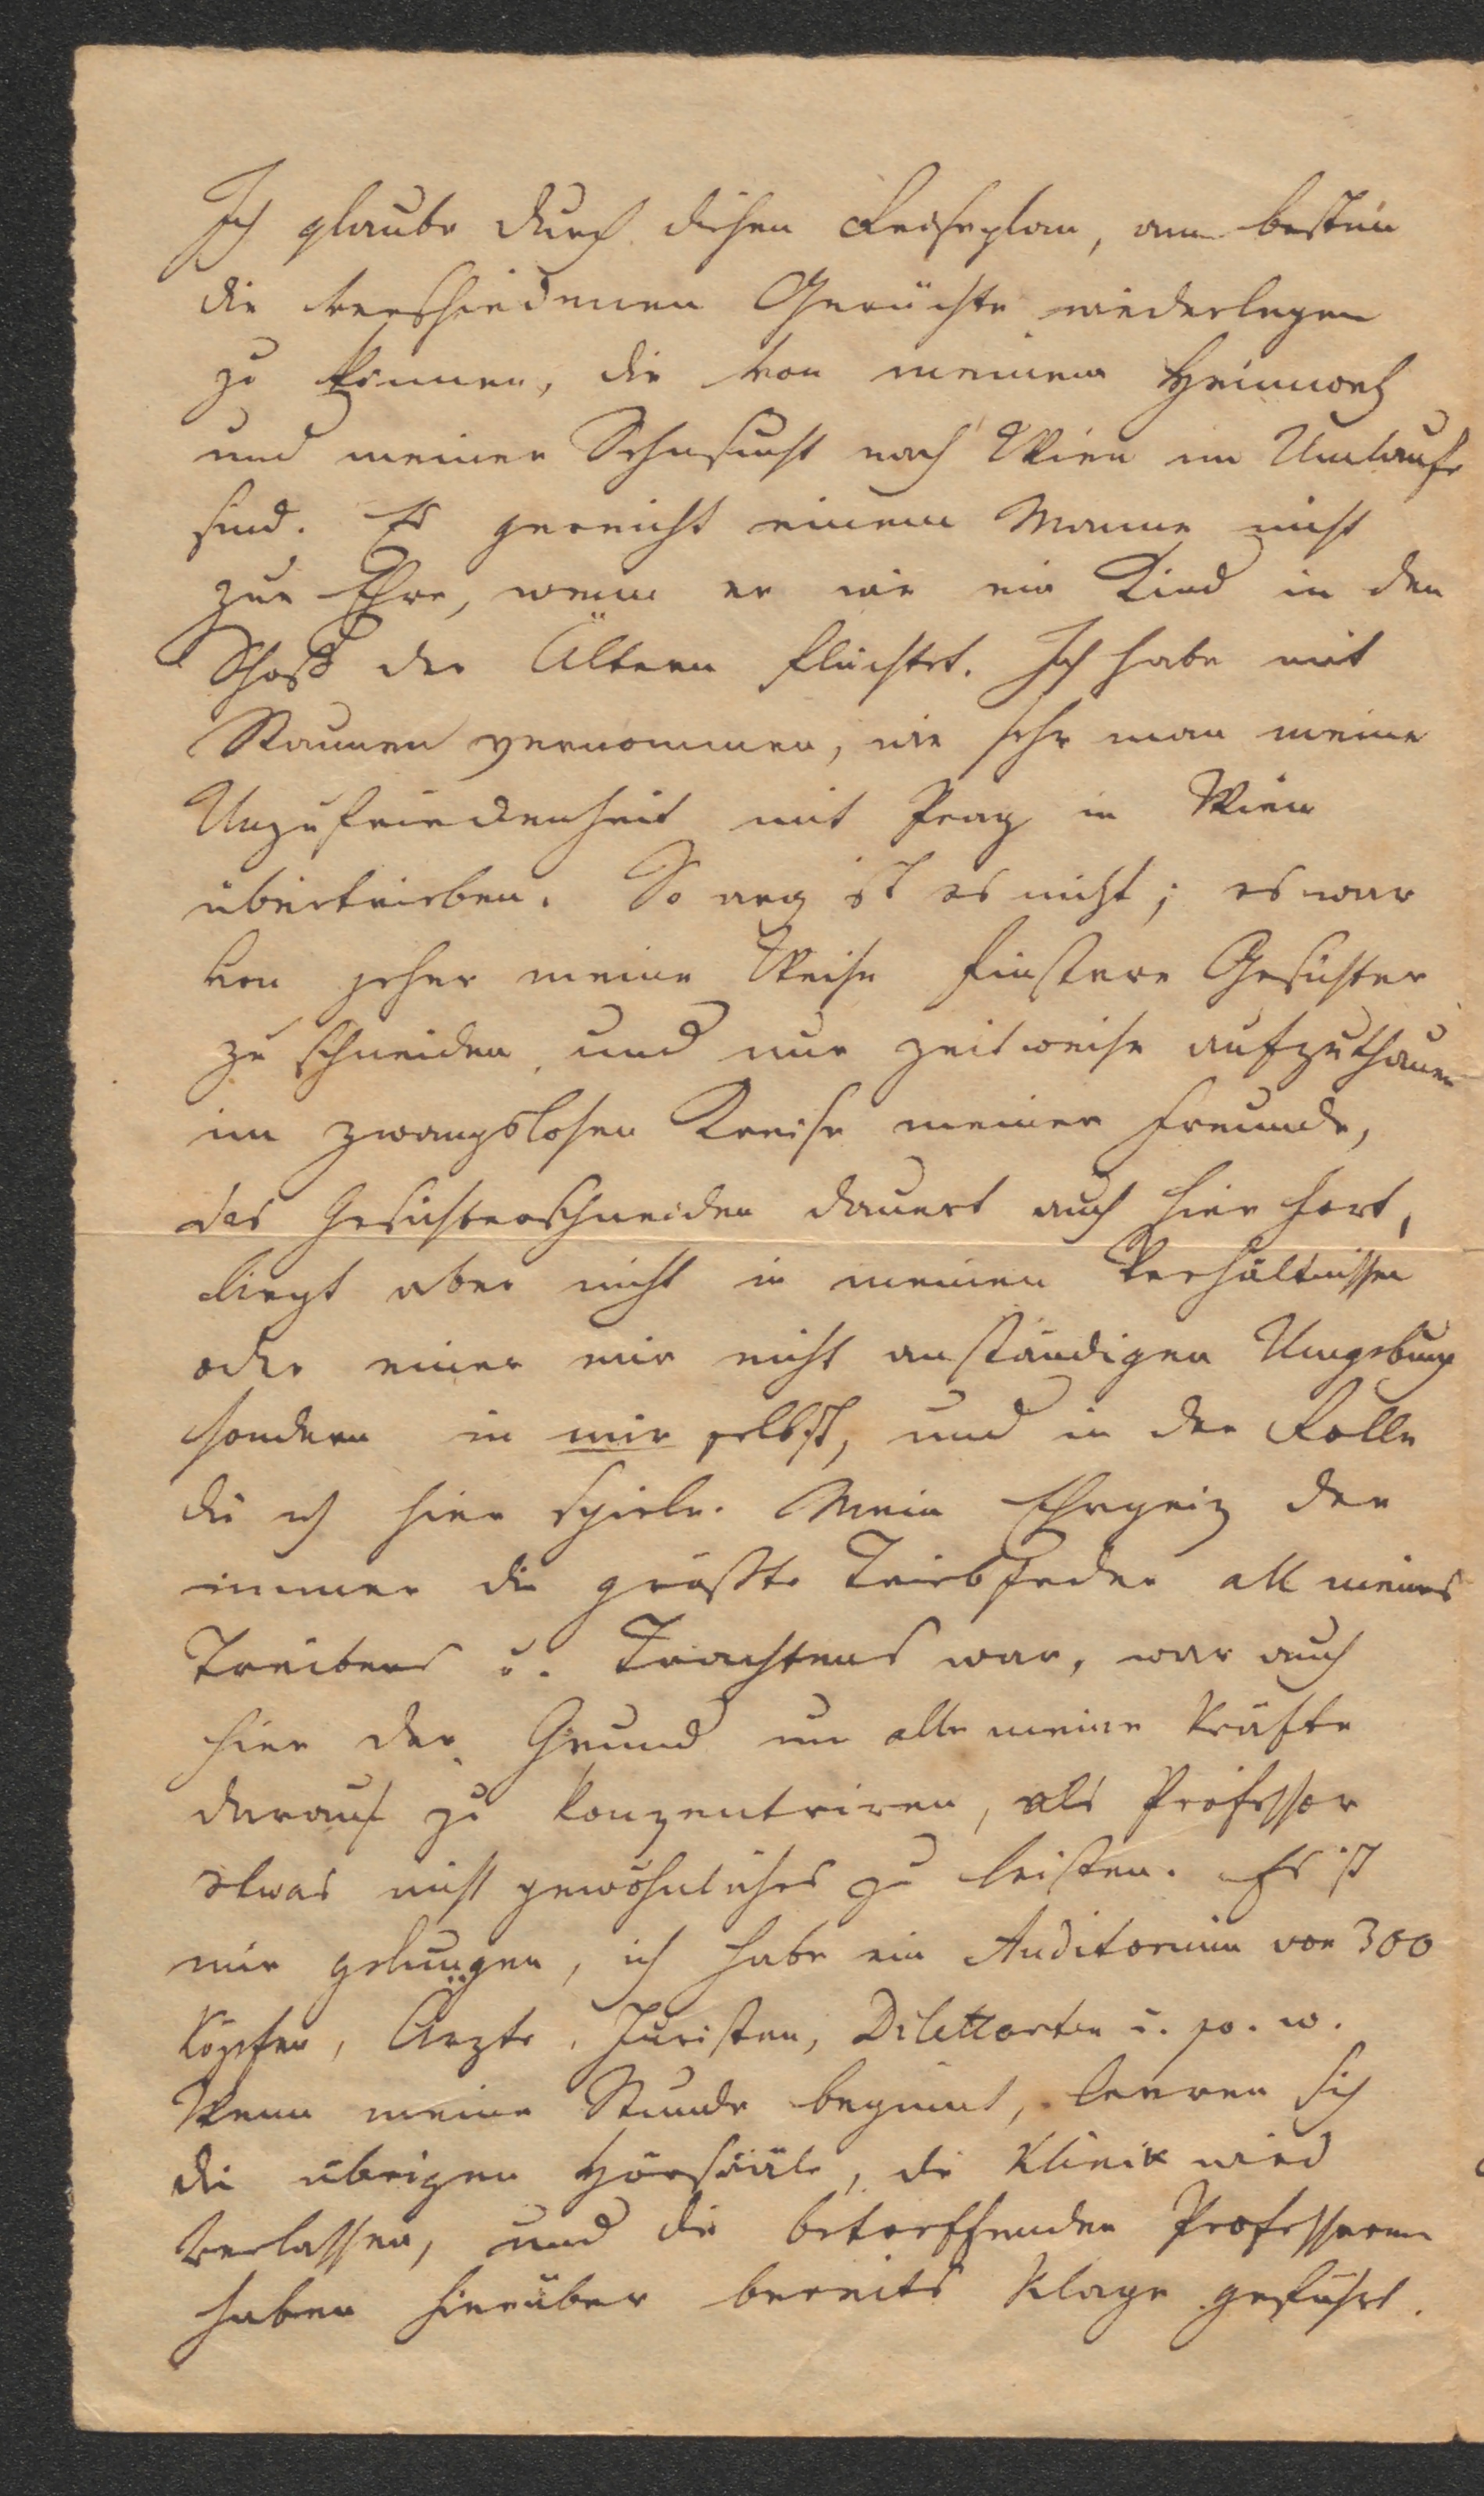 Ich glaube durch diesen Reiseplan, am besten
die verschiedenen Gerüchte niederlegen
zu können, die von meinem Heimweh
und meiner Sehnsucht nach Wien im Umlaufe
sind. Es gereicht einem Manne nicht
zur Ehre, wenn er wie ein Kind in den
Schoß der Ältern flüchtet. Ich habe mit
Staunen vernommen, wie sehr man meine
Unzufriedenheit mit Prag in Wien
übertrieben. So arg ist es nicht; es war
von jeher meine Weise finstere Gesichter
zu schneiden und nur zeitweise aufzuthauen
im zwangslosen Kreise meiner Freunde,
das Gesichterschneiden dauert auch hier fort,
liegt aber nicht in meinen Verhältnissen
oder einer mir nicht anständigen Umgebung
sondern in mir selbst, und in der Rolle
die ich hier spiele. Mein Ehrgeiz der
immer die größte Triebfeder all meines
Treibens u. Trachtens war, war auch
hier der Grund um alle meine Kräfte
darauf zu konzentriren, als Professor
etwas nicht gewöhnliches zu leisten. Es ist
mir gelungen, ich habe ein Auditorium von 300
Köpfen, Ärzte, Juristen, Dilettanten u. so. w.
Wenn meine Stunde beginnt, leeren sich
die übrigen Hörsääle, die Klinik wird
verlassen, und die betreffenden Professoren
haben hierüber bereits Klage geführt.